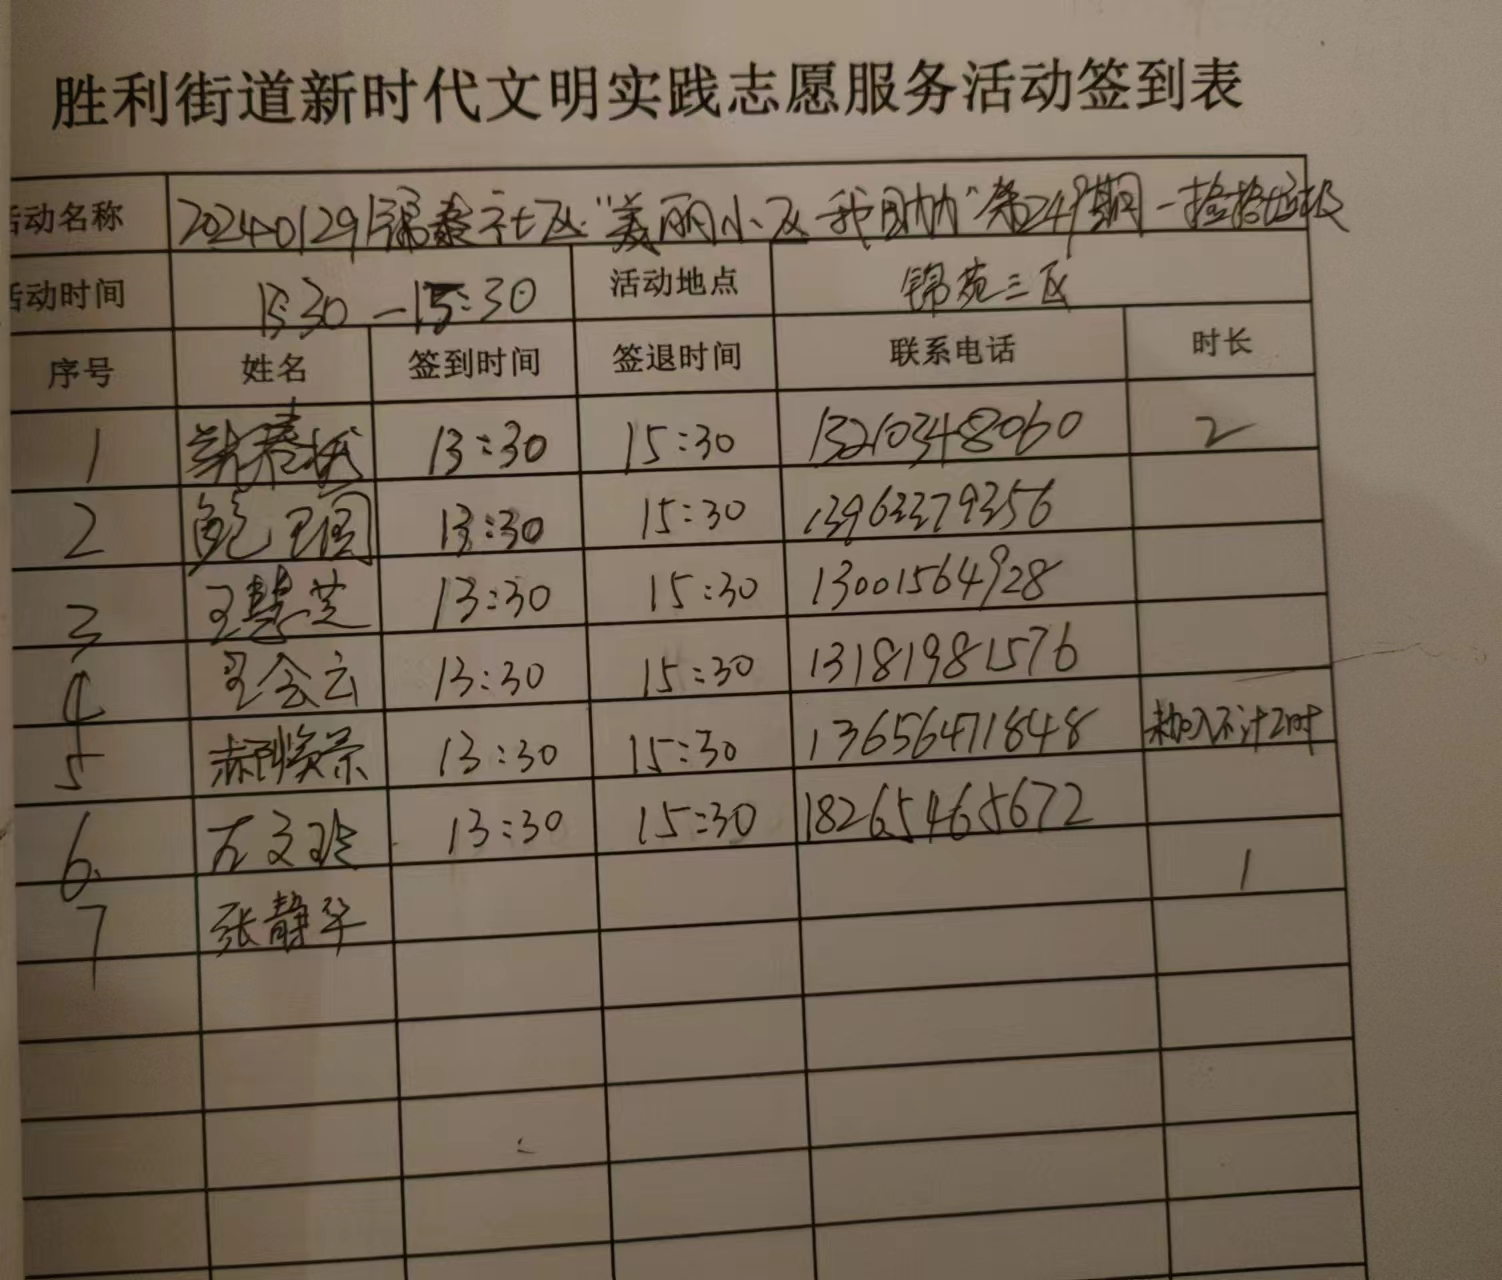 胜利街道新时代文明实践志愿服务活动签到表
活动名称 20240129锦泰社区"美丽小区 我帮"第249期-捡拾垃圾
活动时间 13:30-15:30 活动地点 锦苑三区
序号 姓名 签到时间 签退时间 联系电话 时长
1 13:30 15:30 13210348060 2
2 鲍卫国 13:30 15:30 13963379356
3 王慧芝 13:30 15:30 13001564928
4 王会云 13:30 15:30 13181981576
5 13:30 15:30 13656471848 未加入不计2时
6. 13:30 15:30 18265465672
7 张静华 1